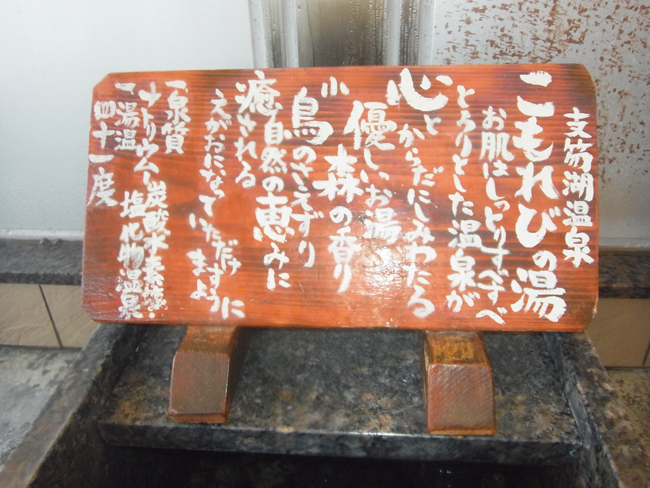 支笏湖温泉
こもれびの湯
お肌はしっとりすべすべ
とろりとした温泉が
心とからだにしみわたる
優しいお湯
森の香り
小鳥のさえずり
自然の恵みに
癒される
えがおになっていただけ
ますように
「泉質
ナトリウムー炭酸水素塩・
塩化物温泉
「湯温
四十一度